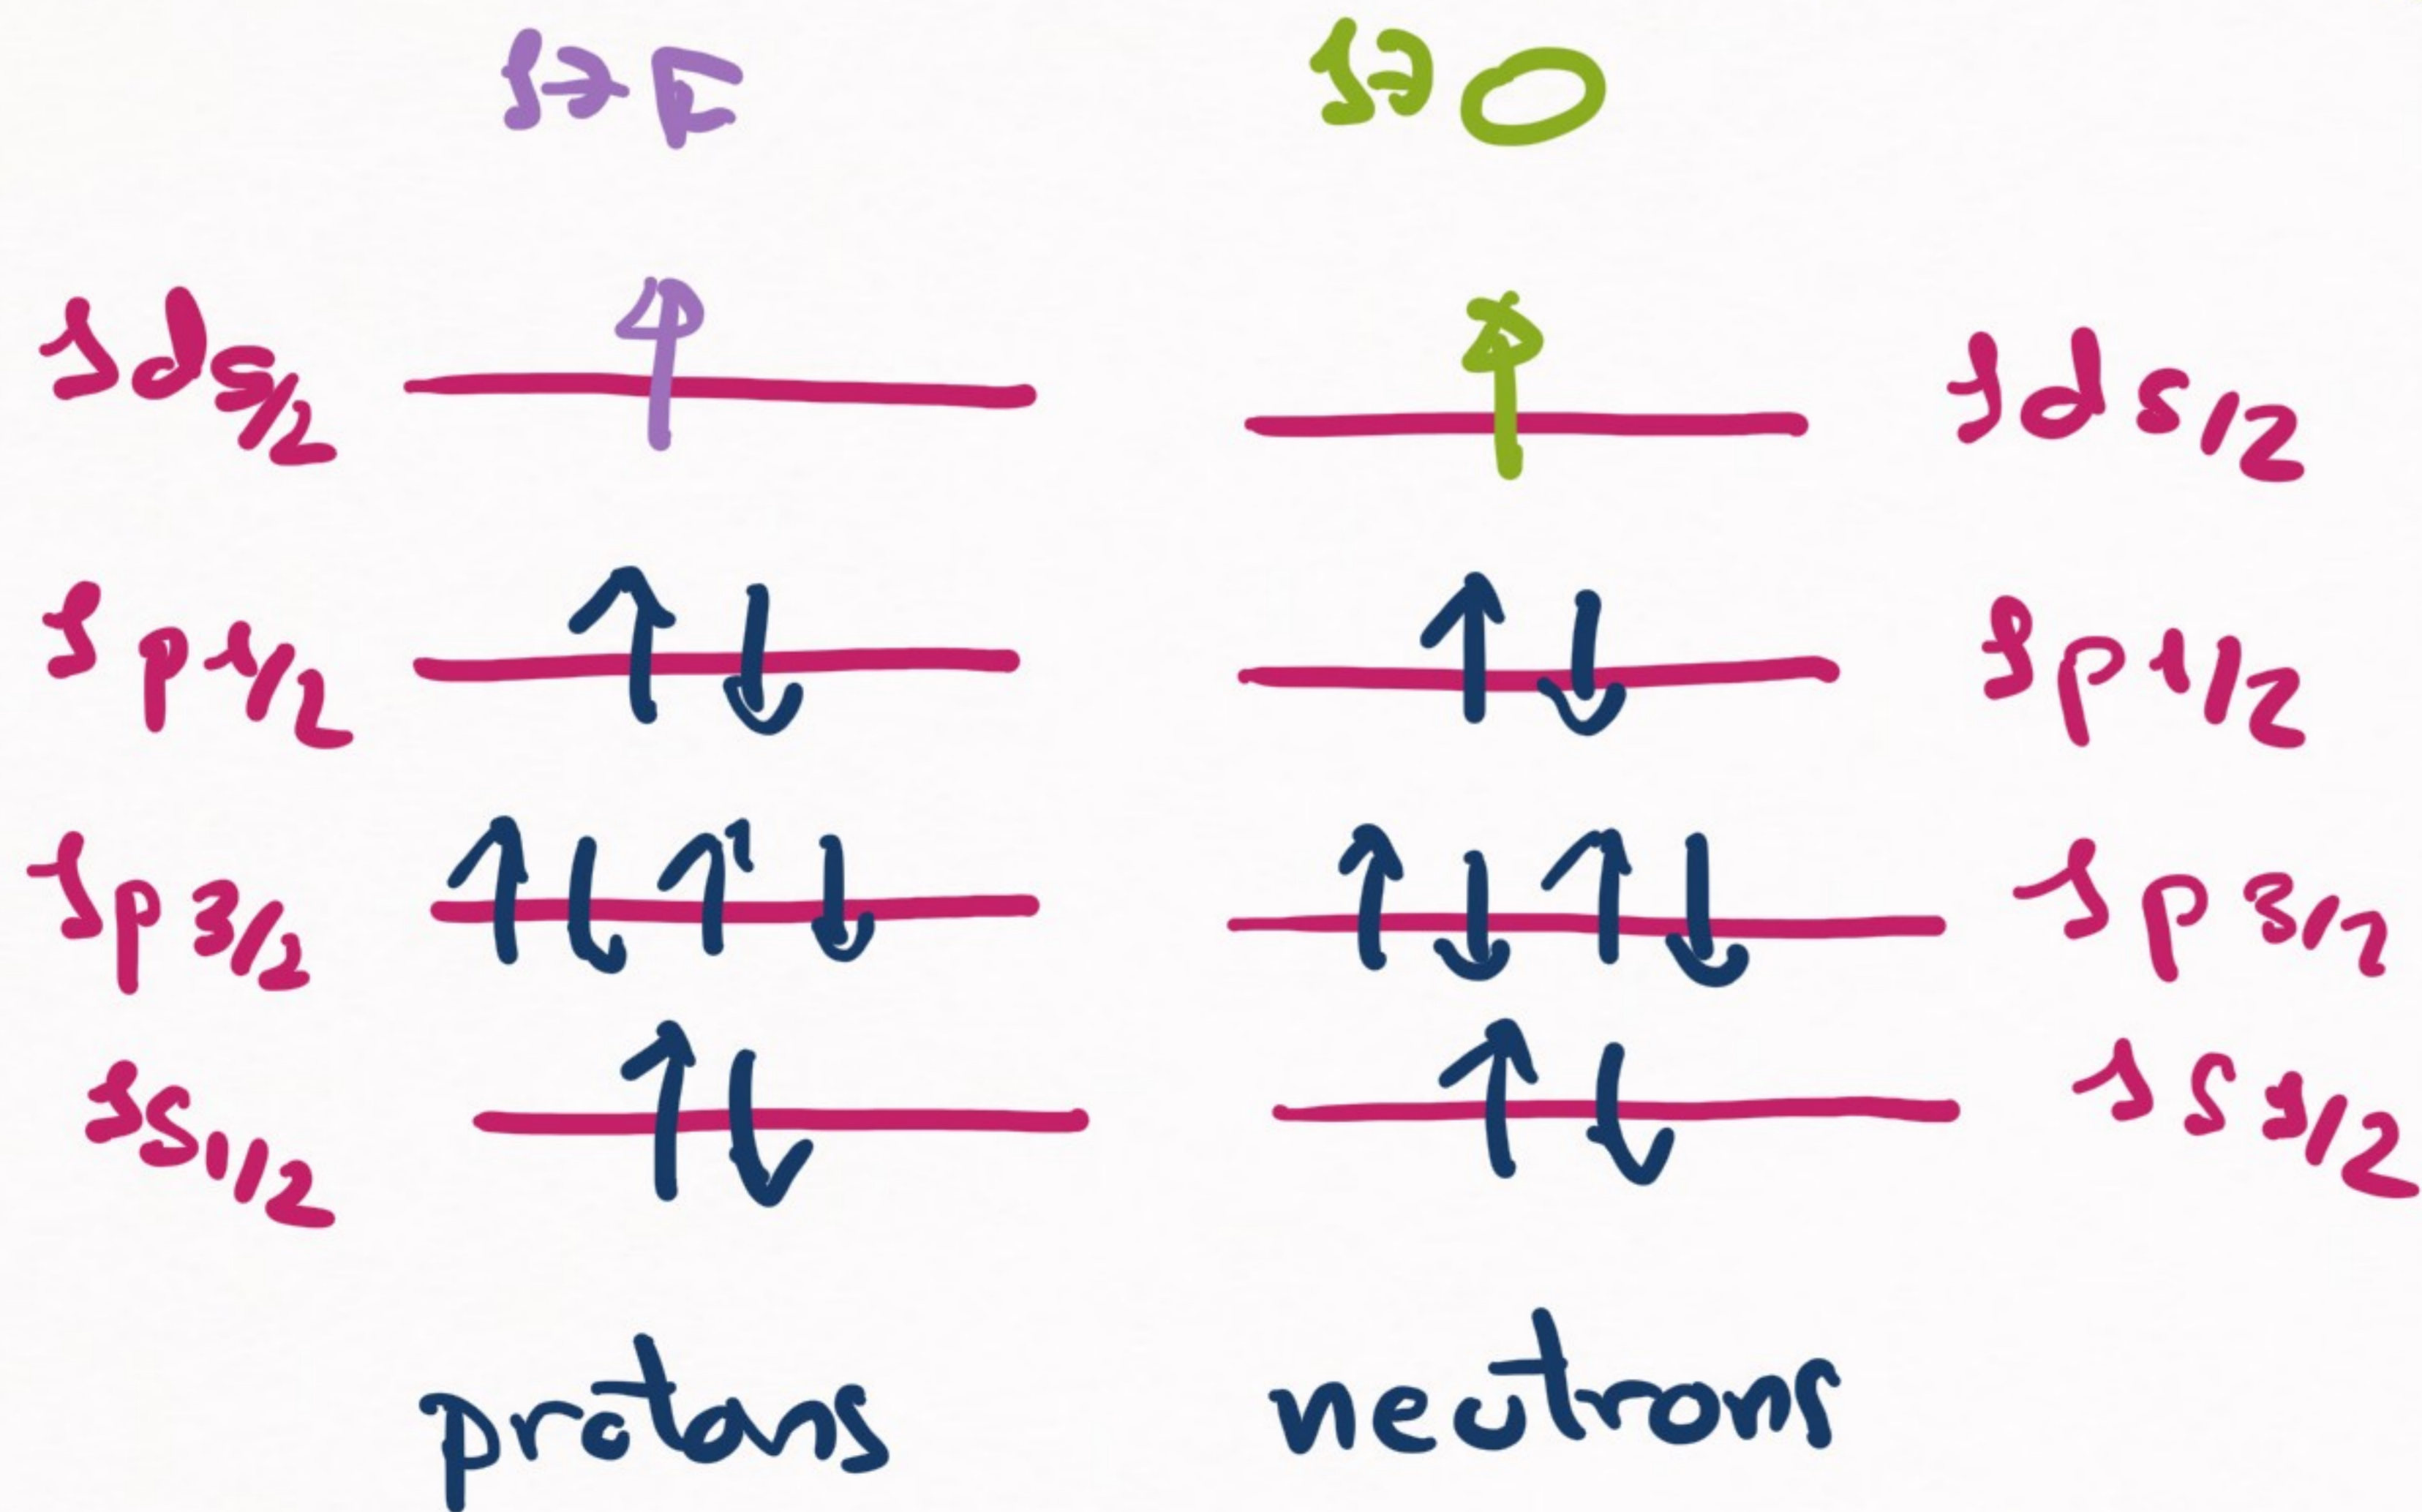 17F 17O
1d5/2 1d5/2
1p1/2 1p1/2
1p3/2 1p3/2
1s1/2 1s1/2
protons neutrons